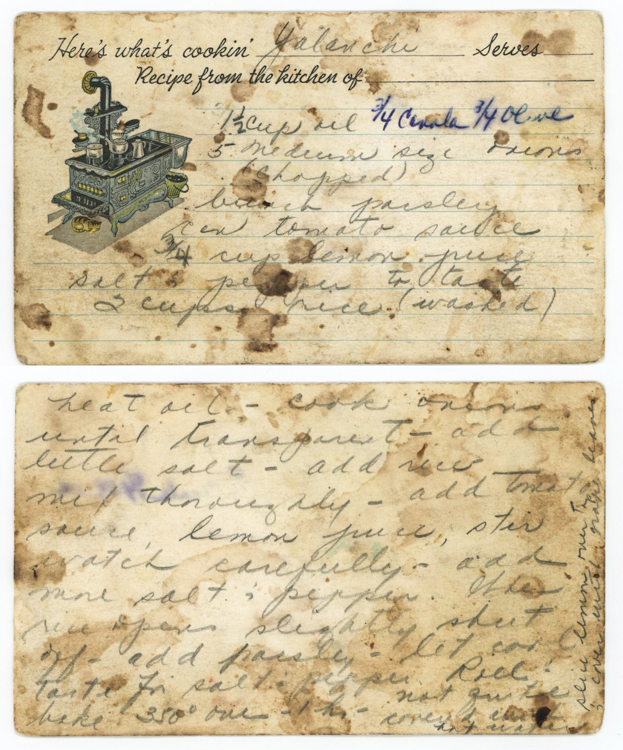 Here's what's cookin' Yalanchi Serves
Recipe from the kitchen of
1½ cup oil 3/4 Canola 3/4 Olive
5 medium size onions
(chopped)
bunch parsley
can tomato sauce
3/4 cup lemon juice
salt & pepper to taste
2 cups rice (washed)
heat oil - cook onions
until transparent - add
little salt - add rice
mix thoroughly - add tomato
sauce, lemon juice, stir
watch carefully - add
more salt & pepper. When
rice opens slightly shut
off - add parsley - let cool
taste for salt & pepper Roll -
bake 350° oven - 1 hr - not quite
covered with
hot water
slice lemon over top
cover with grape leaves